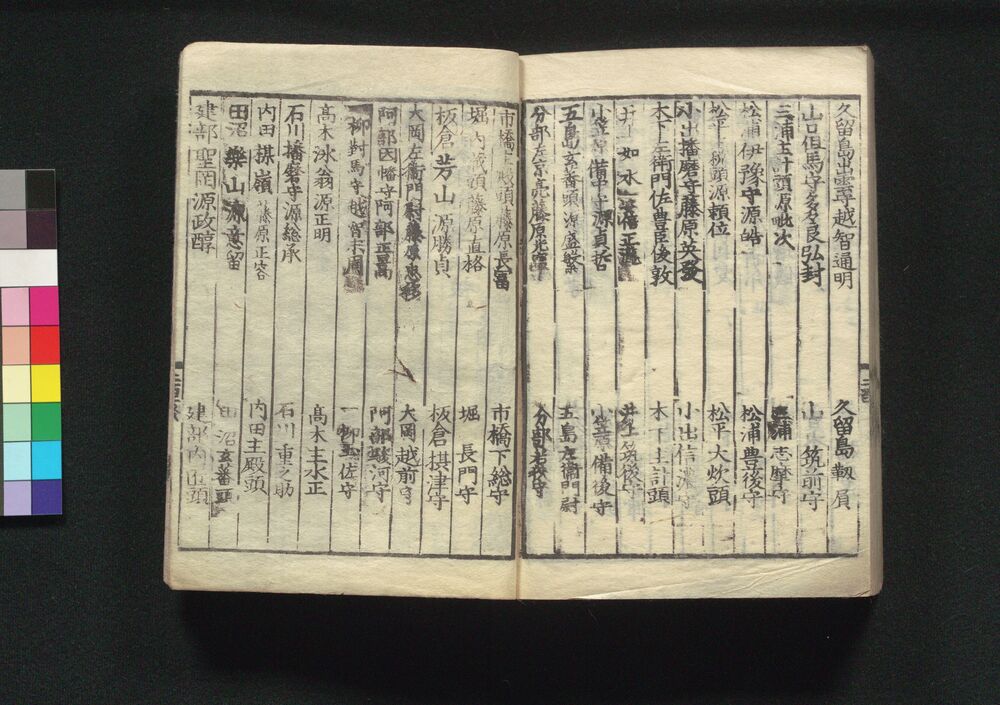 久留島出雲越智通明 久留島靱負
山口但馬守多々良弘封 山口筑前守
三浦主計頭源毗次 三浦志摩守
松浦伊豫守源皓 松浦豊後守
松平 頭源頼位 松平大炊頭
小出播磨守藤原英發 小出信濃守
木下左衛門佐豊臣俊敦 木下主計頭
井上如水 井上筑後守
小笠原備中守源貞哲 小笠原備後守
五島玄蕃頭源盛繁 五島左衛門尉
分部左京亮藤原光 分部若狭守
市橋主殿頭藤原長富 市橋下総守
堀内蔵頭藤原直格 堀長門守
板倉芳山源勝貞 板倉摂津守
大岡左衛門尉藤原忠 大岡越前守
阿部因幡守阿部正 阿部駿河守
一柳對馬守越智末周 一柳 佐守
高木泳翁源正明 高木主水正
石川播磨守源総承 石川重之助
内田 嶺藤原正容 内田主殿頭
田沼樂山源意留 田沼玄蕃頭
建部聖岡源政醇 建部内匠頭